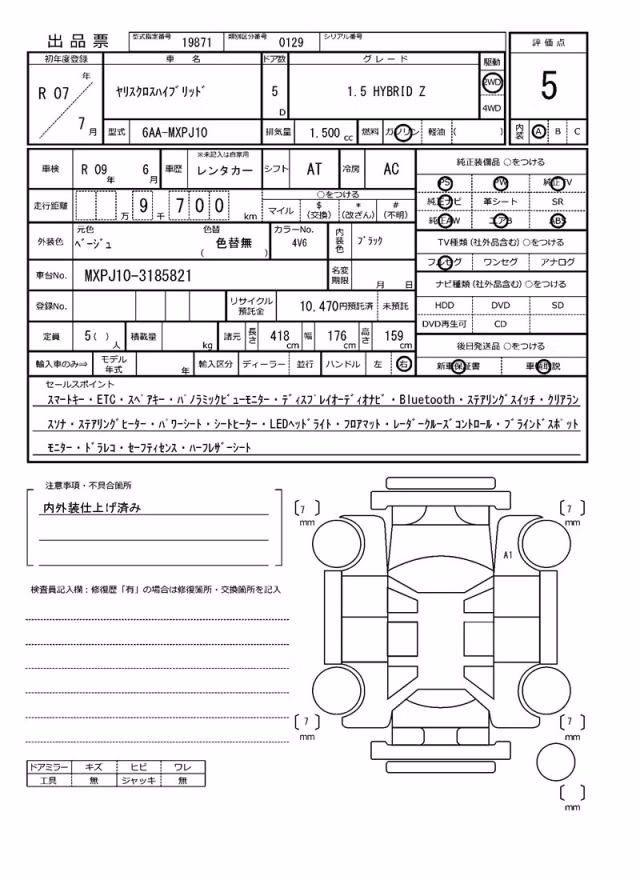 出品票
型式指定番号 19871 類別区分番号 0129 シリアル番号
初年度登録 車名 ドア数 グレード 駆動 評価点
R 07 年 7 月 ﾔﾘｽｸﾛｽﾊｲﾌﾞﾘｯﾄﾞ 5 D 1.5 HYBRID Z 2WD 4WD 5
型式 6AA-MXPJ10 排気量 1.500 cc 燃料 ガソリン 軽油 ( ) 内装 A B C
車検 R 09 年 6 月 車歴 ※未記入は自家用 レンタカー シフト AT 冷房 AC
純正装備品 ○をつける
PS PW 純正TV
純正ナビ 革シート SR
純正AW エアB ABS
走行距離 万 9 千 7 0 0 km ○をつける マイル $ (交換) * (改ざん) # (不明)
外装色 元色 ﾍﾞｰｼﾞｭ 色替 色替無 ( ) カラーNo. 4V6 内装色 ﾌﾞﾗｯｸ
TV種類 (社外品含む) ○をつける
フルセグ ワンセグ アナログ
車台No. MXPJ10-3185821 名変期限 月 日
ナビ種類 (社外品含む) ○をつける
HDD DVD SD
DVD再生可 CD
登録No. リサイクル預託金 10.470円預託済 未預託
定員 5( ) 人 積載量 kg 諸元 長さ 418 cm 幅 176 cm 高さ 159 cm
後日発送品 ○をつける
新車保証書 車輌取説
輸入車のみ⇒ モデル年式 年 輸入区分 ディーラー ・ 並行 ハンドル 左 ・ 右
セールスポイント
ｽﾏｰﾄｷｰ・ETC・ｽﾍﾟｱｷｰ・ﾊﾟﾉﾗﾐｯｸﾋﾞｭｰﾓﾆﾀｰ・ﾃﾞｨｽﾌﾟﾚｲｵｰﾃﾞｨｵﾅﾋﾞ・Bluetooth・ｽﾃｱﾘﾝｸﾞｽｲｯﾁ・ｸﾘｱﾗﾝ
ｽｿﾅ・ｽﾃｱﾘﾝｸﾞﾋｰﾀｰ・ﾊﾟﾜｰｼｰﾄ・ｼｰﾄﾋｰﾀｰ・LEDﾍｯﾄﾞﾗｲﾄ・ﾌﾛｱﾏｯﾄ・ﾚｰﾀﾞｰｸﾙｰｽﾞｺﾝﾄﾛｰﾙ・ﾌﾞﾗｲﾝﾄﾞｽﾎﾟｯﾄ
ﾓﾆﾀｰ・ﾄﾞﾗﾚｺ・ｾｰﾌﾃｨｾﾝｽ・ﾊｰﾌﾚｻﾞｰｼｰﾄ
注意事項・不具合箇所
内外装仕上げ済み
[ 7 ] mm [ 7 ] mm
A1
検査員記入欄：修復歴「有」の場合は修復箇所・交換箇所を記入
[ 7 ] mm [ 7 ] mm
ドアミラー キズ ヒビ ワレ
工具 無 ジャッキ 無
[ ] mm